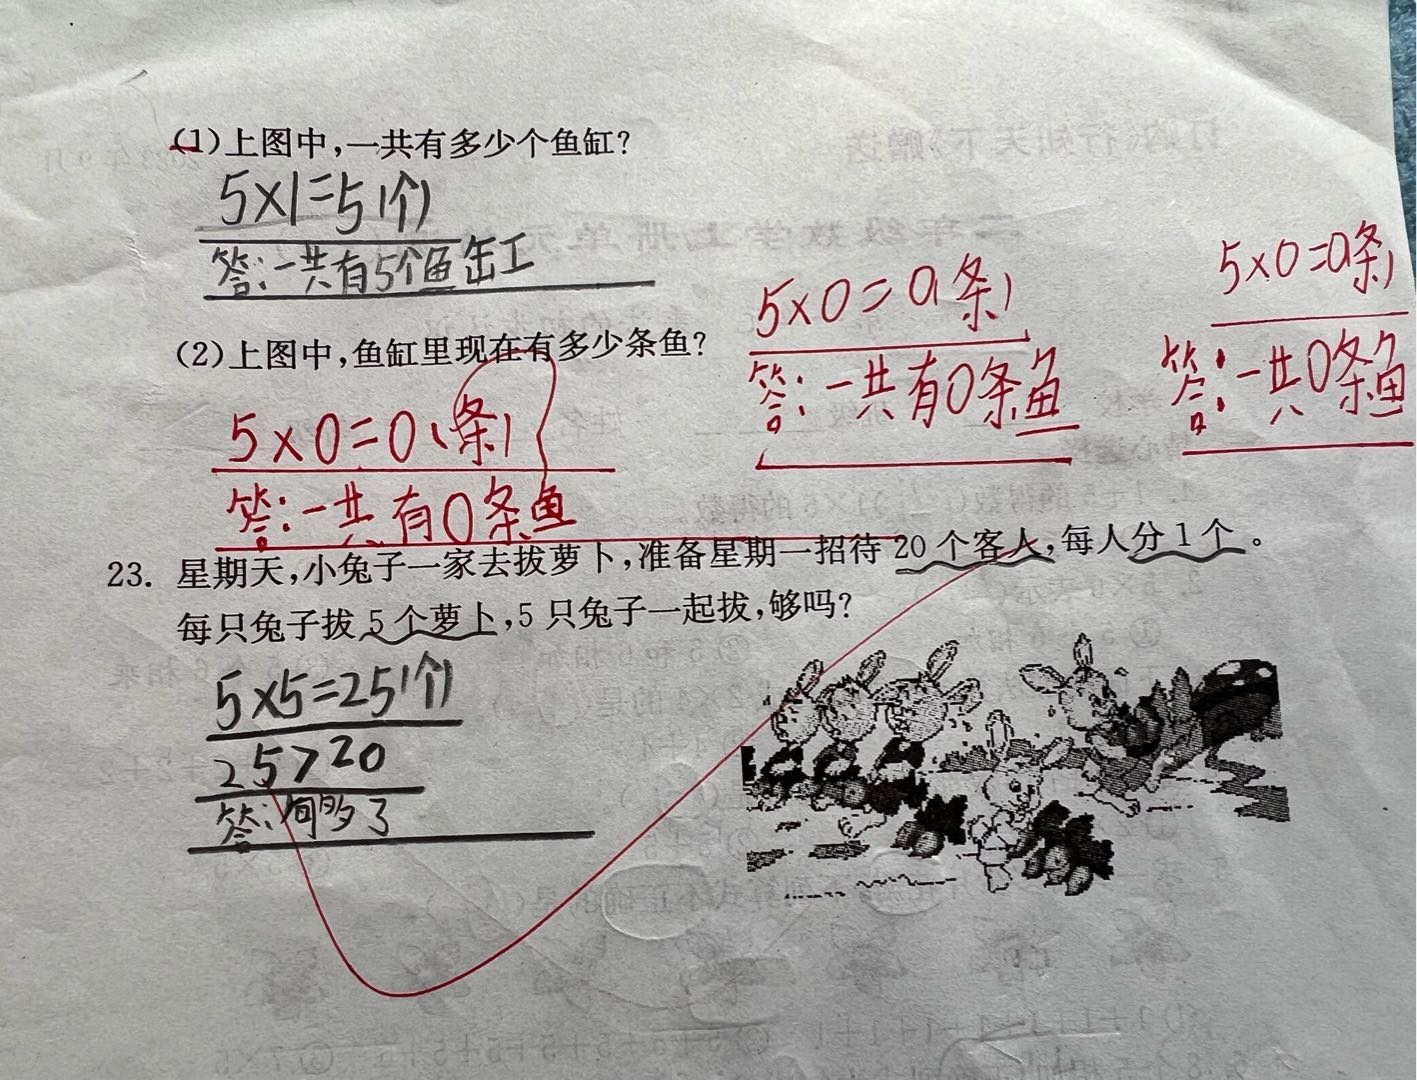 (1)上图中,一共有多少个鱼缸?
5×1=5(个)
答:一共有5个鱼缸
(2)上图中,鱼缸里现在有多少条鱼?
5×0=0(条)
答:一共有0条鱼
5×0=0(条)
答:一共有0条鱼
5×0=0(条)
答:一共0条鱼
23. 星期天,小兔子一家去拔萝卜,准备星期一招待20个客人,每人分1个。
每只兔子拔5个萝卜,5只兔子一起拔,够吗?
5×5=25(个)
25>20
答:够了